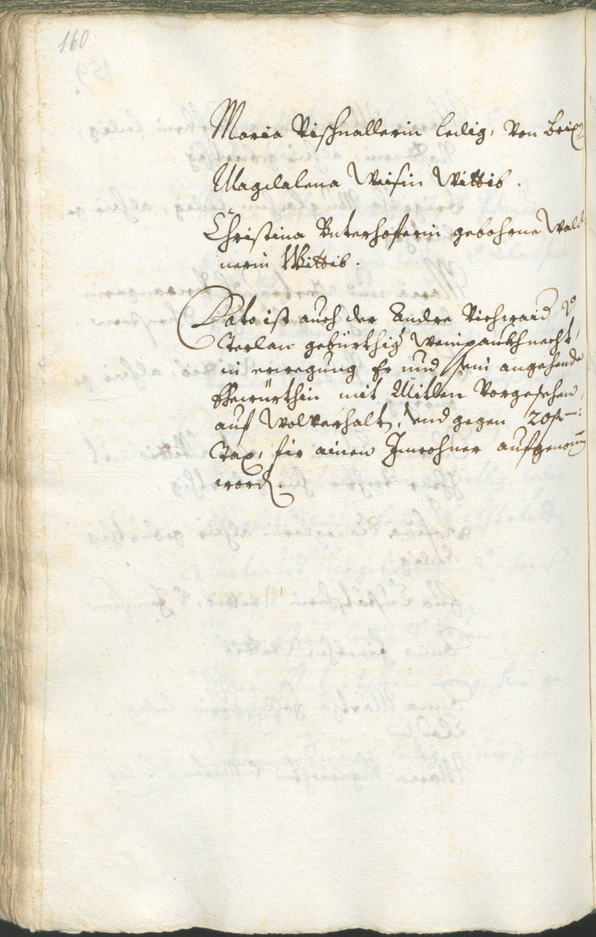 160
Maria Vischnallerin ledig, von Brix
Magdalena Weisin Wittib.
Christina Unterhoferin gebohrne Wald
nerin Wittib.
Dato ist auch der Andre
Terlan gebürthig Weinpankhnecht,
in erwegung Er und sein angehende
Ehewürthin mit Mitlen Vorgesehen,
auf Wolverhalt, und gegen 20 f
Tax, für ainen Inwohner aufgenom
word.